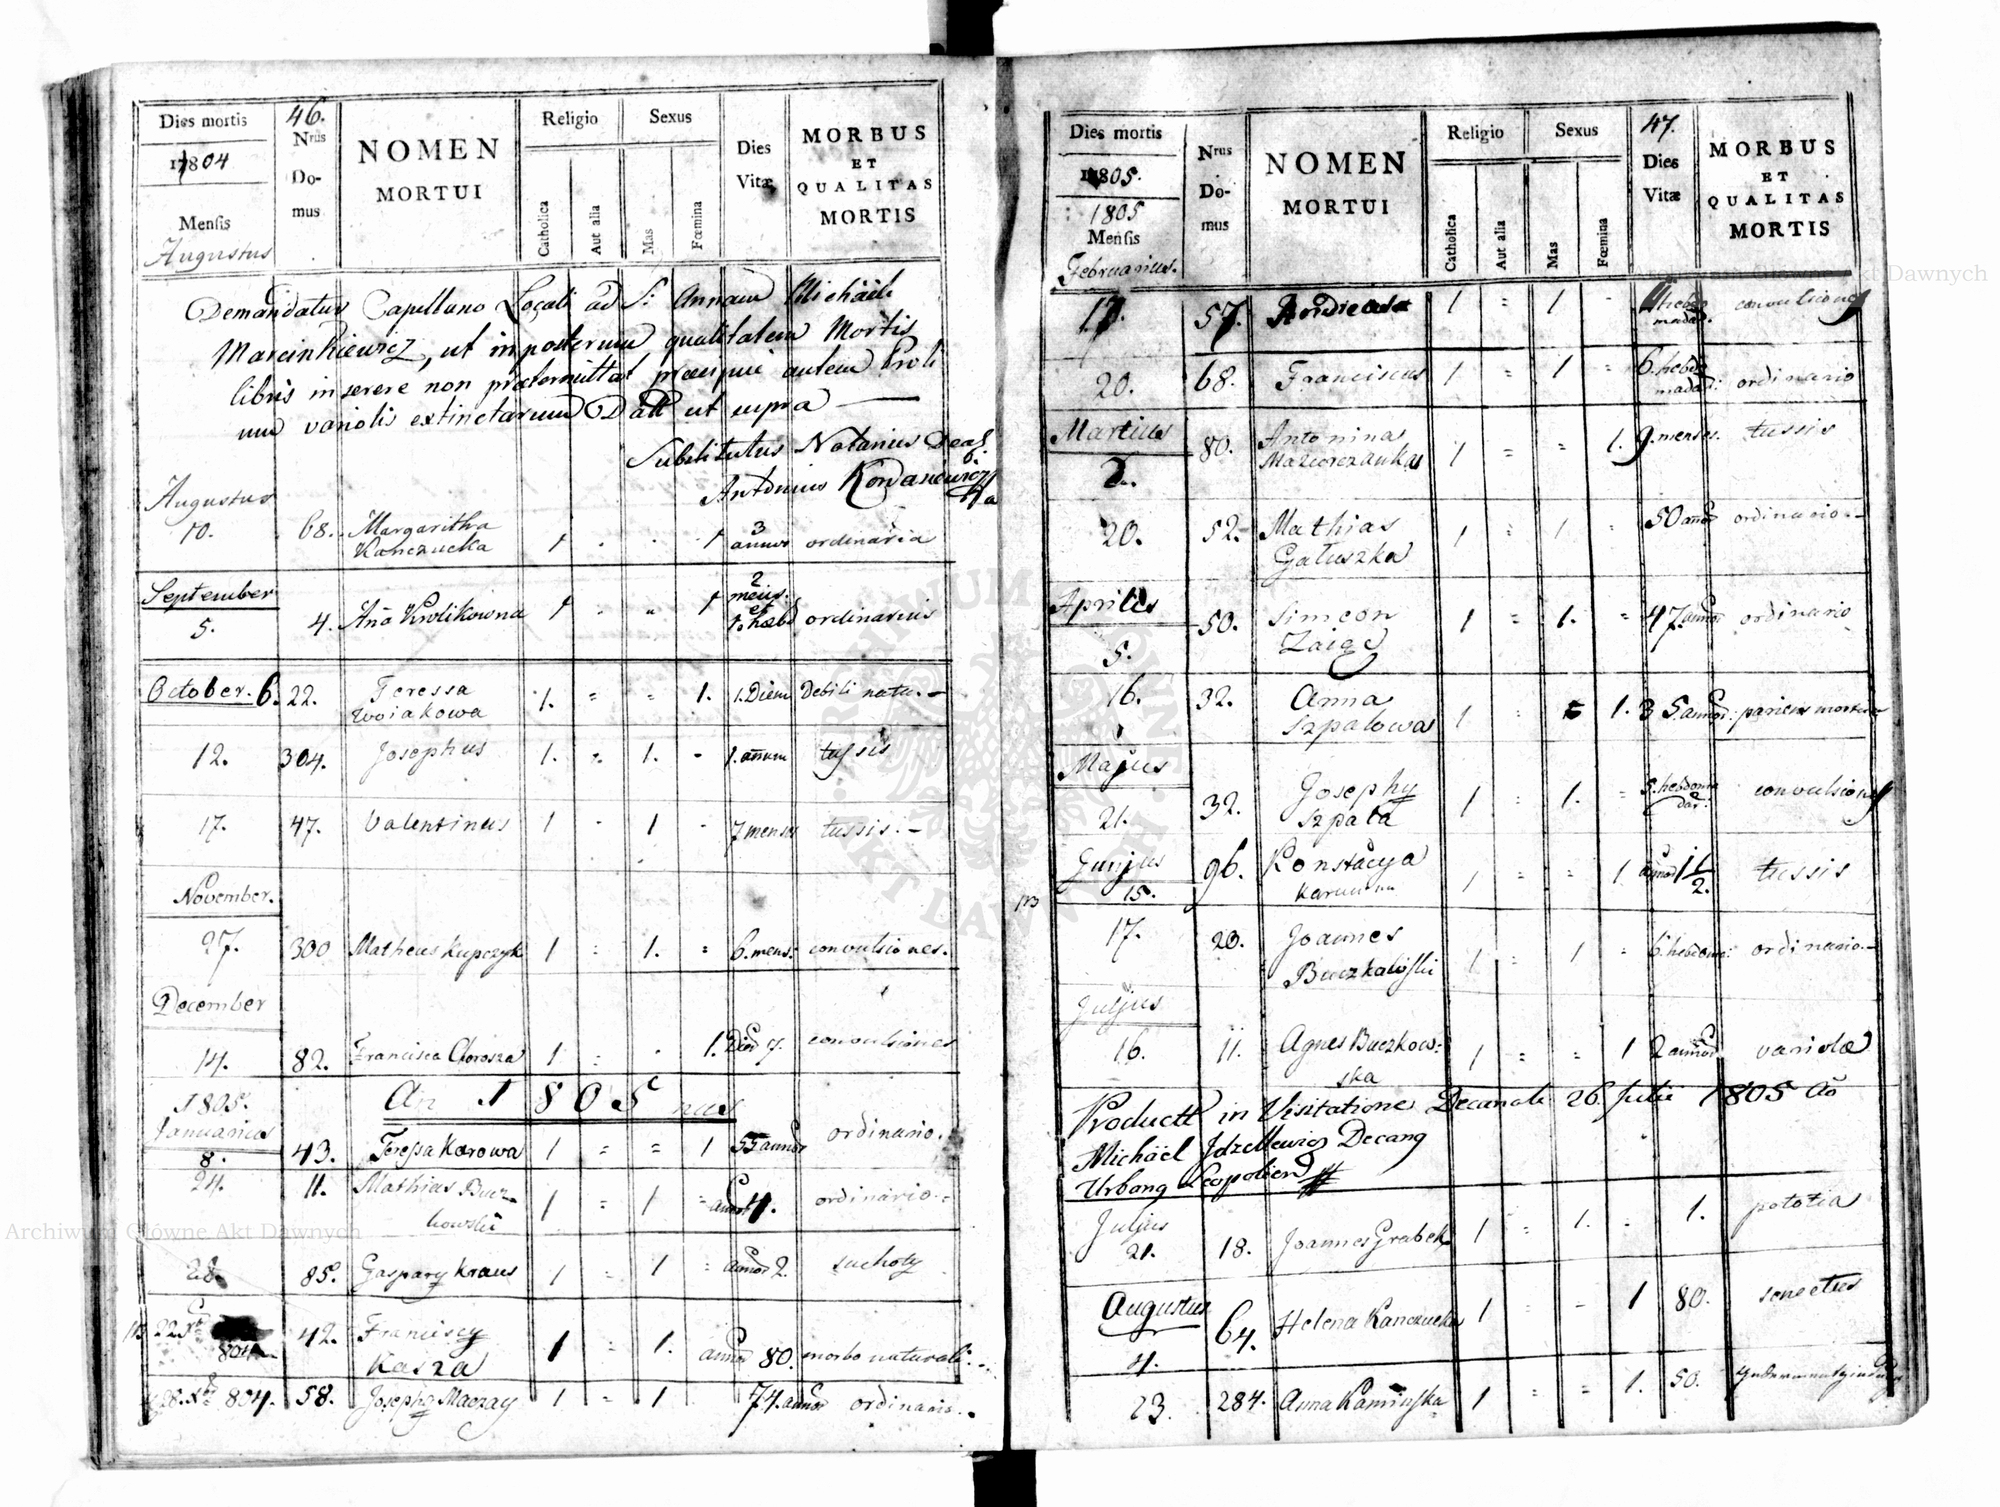 Dies mortis
1804
Mensis
Augustus
46.
Nrus
Do-
mus
NOMEN
MORTUI
Religio
Catholica
Aut alia
Sexus
Mas
Fœmina
Dies
Vitæ
MORBUS
ET
QUALITAS
MORTIS
Demandatur Capellano Locali ad S: Annam Michäeli
Marcinkiewicz, ut in posterum qualitatem Mortis
libris inserere non prætermittat præcipue autem Proli
um variolis extinctarum Datt ut supra
Substitutus Notarius
Antonius
Augustus
10. 68. Margaritha 1 . . 1 3 ordinaria
Kanczucka annor
September
5. 4. Aña Krolikowna 1 . " 1 2 mens. et 1. hæbd ordinarius
October. 6. 22. Teressa 1. = = 1. 1. Diem Debili natu. -
Woiakowa
12. 304. Josephus 1. = 1. - 1. annum tussis
17. 47. Valentinus 1 - 1 - 7 menses tussis. -
November.
27. 300 Matheus Kupczyk 1 = 1. = 6. mens: convulsiones.
December
14. 82. Francisca 1 = . 1. Dier 7. convulsiones
1805. An 1805 nus
Januarius
8. 43. Teressa Karowa 1 = = 1 55 annor ordinario.
24. 11. Mathias Bucz- 1 = 1 = annor 4. ordinario. =
kowski
28. 85. Gaspary Kraus 1 1 = annor 2. suchoty
22 804 42. Franciscy 1 = 1. annor 80. morbo naturali.
Kasza
28. 804. 58. Josephy Maczay 1 = 1 74. annor ordinario.
Dies mortis
1805.
1805
Mensis
Februarius.
Nrus
Do-
mus
NOMEN
MORTUI
Religio
Catholica
Aut alia
Sexus
Mas
Fœmina
47.
Dies
Vitæ
MORBUS
ET
QUALITAS
MORTIS
17. 57. Andreas 1 = 1 - hebdo convulsiones
madar.
20. 68. Franciscus 1 = 1 = 6. hebdo ordinario
madar:
Martius 80. Antonina 1 = = 1. 9. menses. tussis
2. Mazurczanka
20. 52. Mathias 1 = 1 50 annor ordinario. -
Gałuszka
Aprilis
5. 50. Simeon 1 = 1. = 47. annor ordinario
Zaiąc
16. 32. Anna 1 1. 3 5. annor: pariens mortua
Szpatowa
Majus
21. 32. Josephy 1 = 1. 5. hebdoma convulsiones
Szpata dar:
Junjus 96. Konstancya 1 = = 1 annor 1 1/2. tussis
15.
17. 20. Joannes 1 = 1 = 6. hebdoma: ordinario. -
Buczkowski
Juljus
16. 11. Agnes Buczkow= 1 = = 1 2 annor variolæ
ska
Productt in Visitatione Decanali 26. Julii 1805 Aō
Michäel Decang
Urbang Leopoliens
Juljus
21. 18. Joannes Grabek 1 = 1. 1.
Augustus
4. 64. Helena Kanczucka 1 = - 1 80. senectus
23. 284. Anna Kaminska 1 = = 1. 50.
Archiwum Główne Akt Dawnych
Archiwum Główne Akt Dawnych
ARCHIWUM GŁÓWNE
AKT DAWNYCH